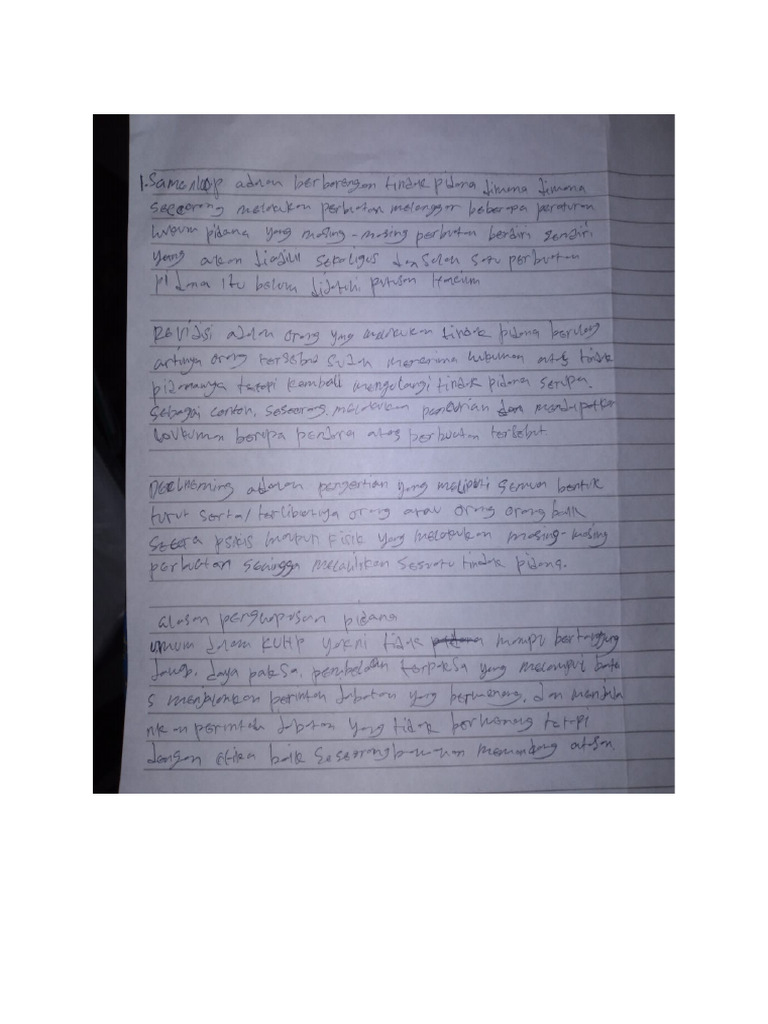 1. Samenloop adalah berbarengan tindak pidana dimana dimana
seseorang melakukan perbuatan melanggar beberapa peraturan
hukum pidana yang masing-masing perbuatan berdiri sendiri
yang akan diadili sekaligus dan salah satu perbuatan
pidana itu belum dijatuhi putusan Hakim
Revidsi adalah orang yang melakukan tindak pidana berulang
artinya orang tersebut sudah menerima hukuman atas tindak
pidananya tetapi kembali mengulangi tindak pidana serupa.
sebagai contoh, seseorang melakukan pencurian dan mendapatkan
hukuman berupa penjara atas perbuatan tersebut.
Deelneming adalah pengertian yang meliputi semua bentuk
turut serta/terlibatnya orang atau orang orang baik
secara psikis maupun fisik yang melakukan masing-masing
perbuatan sehingga melahirkan sesuatu tindak pidana.
alasan penghapusan pidana
umum dalam KUHP yakni tidak mampu bertanggung
jawab, daya paksa, pembelaan terpaksa yang melampui bata
s menjalankan perintah jabatan yang berwenang, dan menjala
nkan perintah jabatan yang tidak berwenang tetapi
dengan etika baik seseorang bawahan memandang atasan.